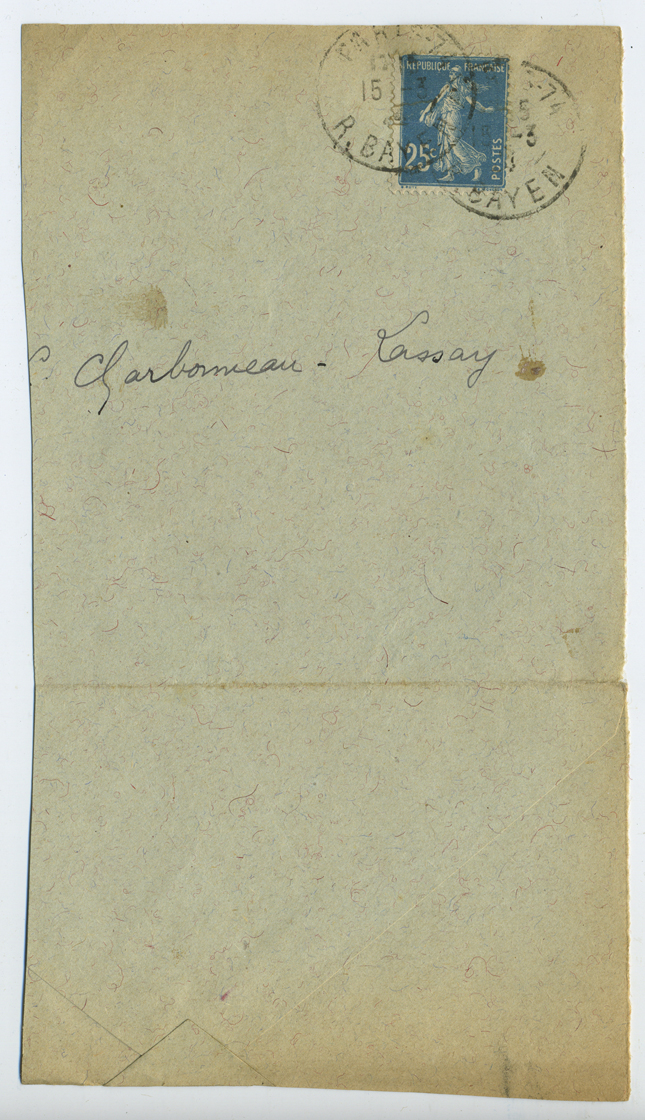 PARIS-7
15 -3
R. BAYEN
REPUBLIQUE FRANÇAISE
25c
POSTES
-74
5
-3
BAYEN
Charbonneau - Lassay